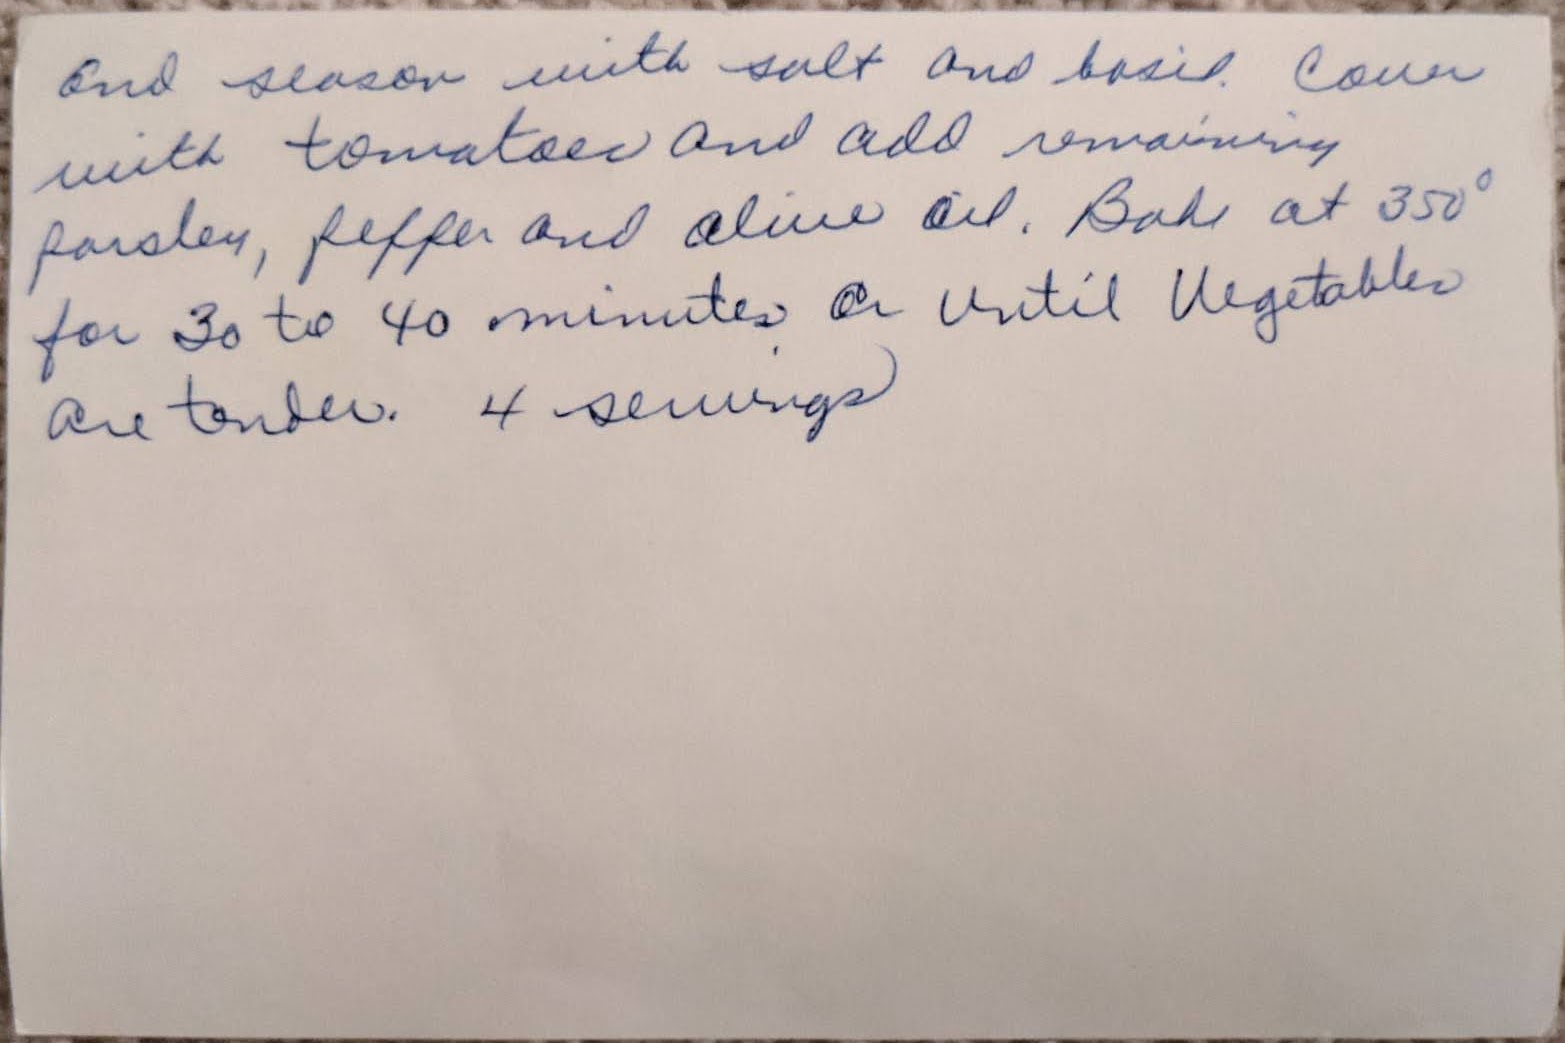 and season with salt and basil. Cover
with tomatoes and add remaining
parsley, pepper and olive oil. Bake at 350°
for 30 to 40 minutes or until Vegetables
are tender. 4 servings